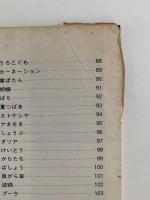 うろこぐも 88
カーネーション 89
葉ぼたん 90
胡蝶 91
ばら 92
夏つばき 93
ストケシヤ 94
アネモネ 95
しょうぶ 96
ダリア 97
けいとう 98
からたち 99
ばしょう 100
貝がら草 101
迷路 102
ブーケ 103